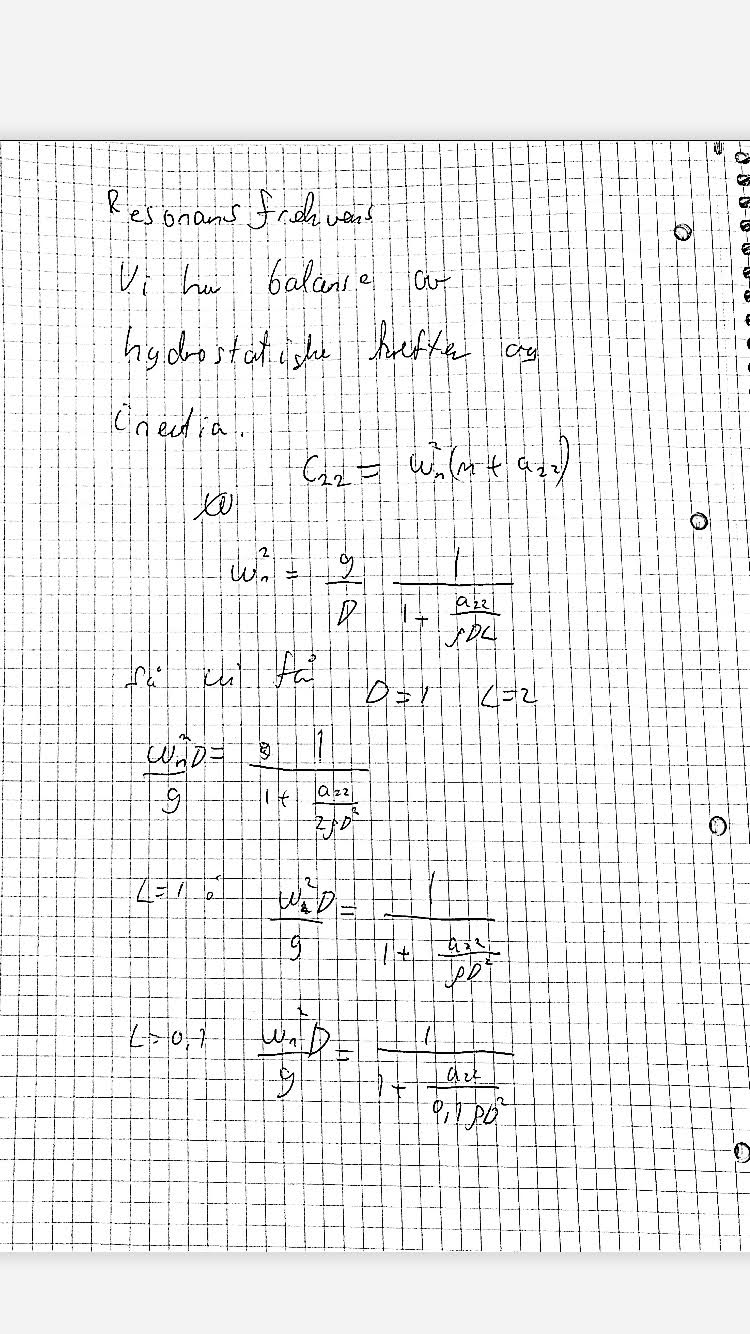 Resonans frekvens
Vi har balanse av
hydrostatiske krefter og
inertia.
C₂₂ = ωₙ²(m + a₂₂)
ωₙ² = g/D 1/(1 + a₂₂/(ρDL))
så vi få D=1 L=2
ωₙ²D/g = 1/(1 + a₂₂/(2ρD²))
L=1: ωₙ²D/g = 1/(1 + a₂₂/(ρD²))
L=0,1 ωₙ²D/g = 1/(1 + a₂₂/(0,1ρD²))